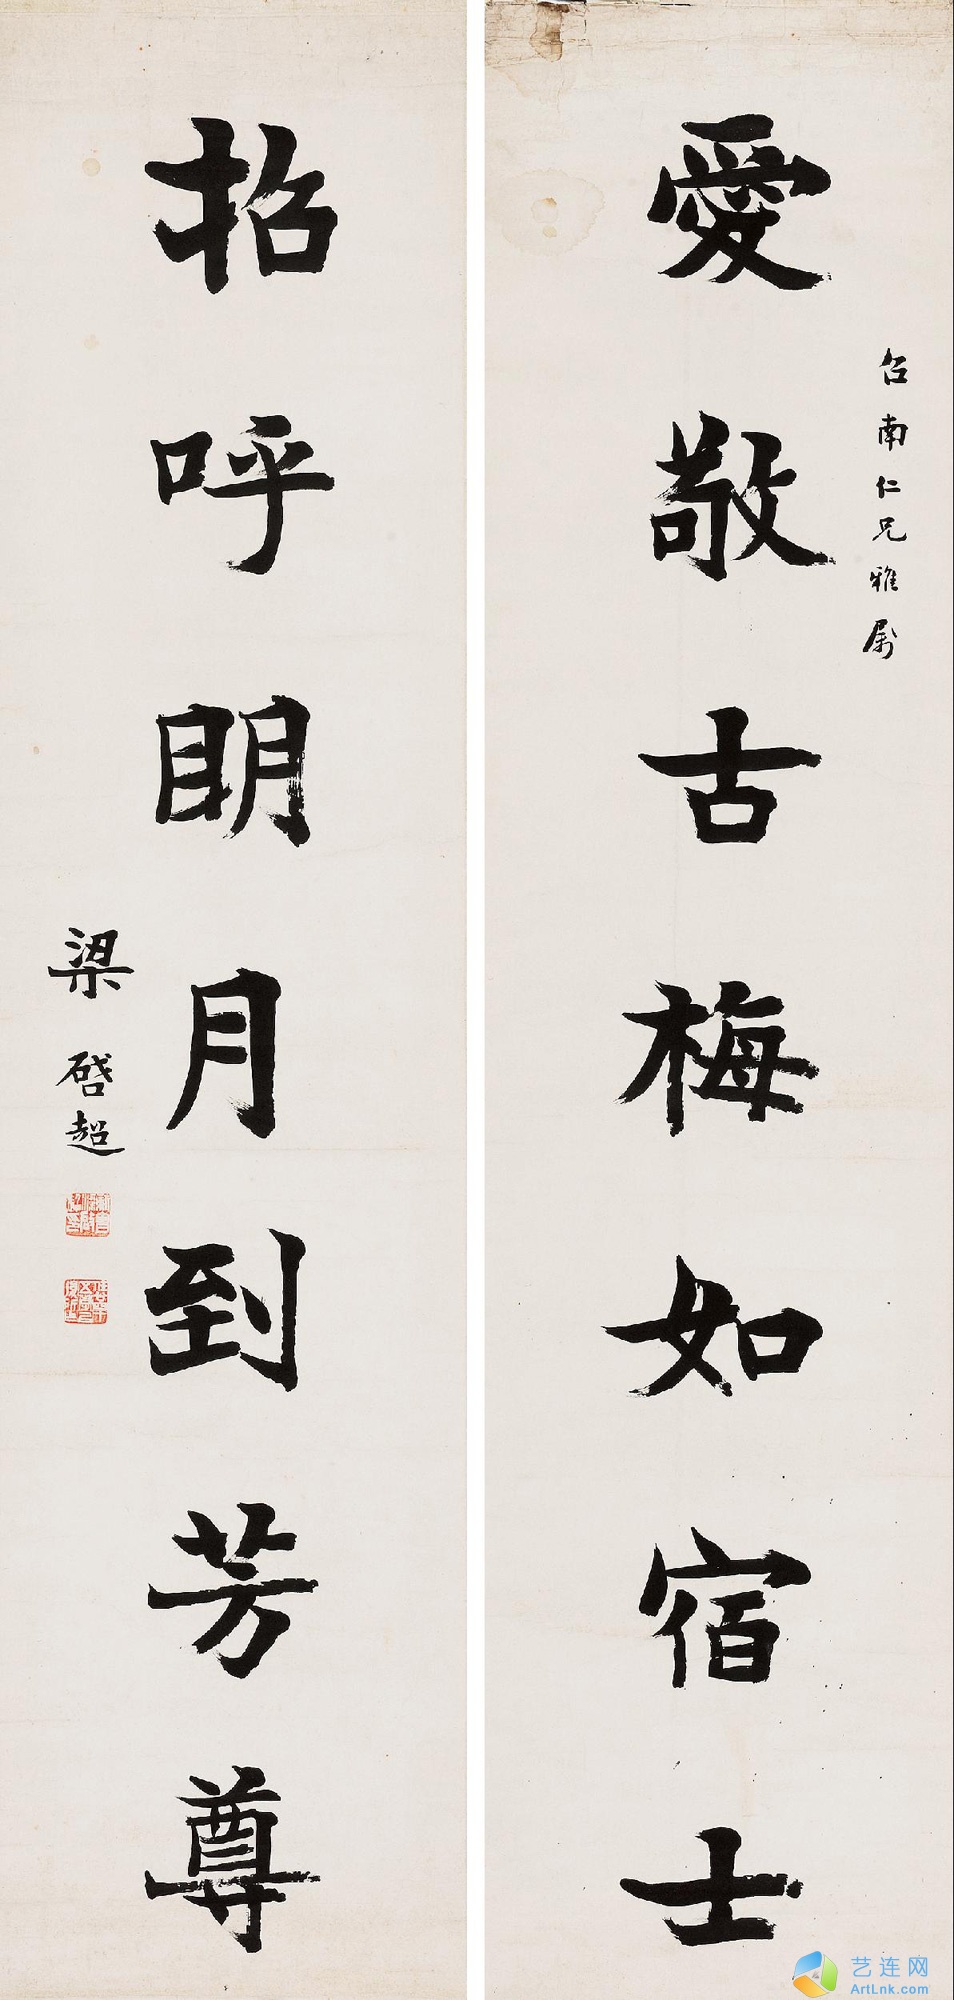 愛敬古梅如宿士
召南仁兄雅屬
招呼眀月到芳尊
梁啓超
艺连网
ArtLnk.com